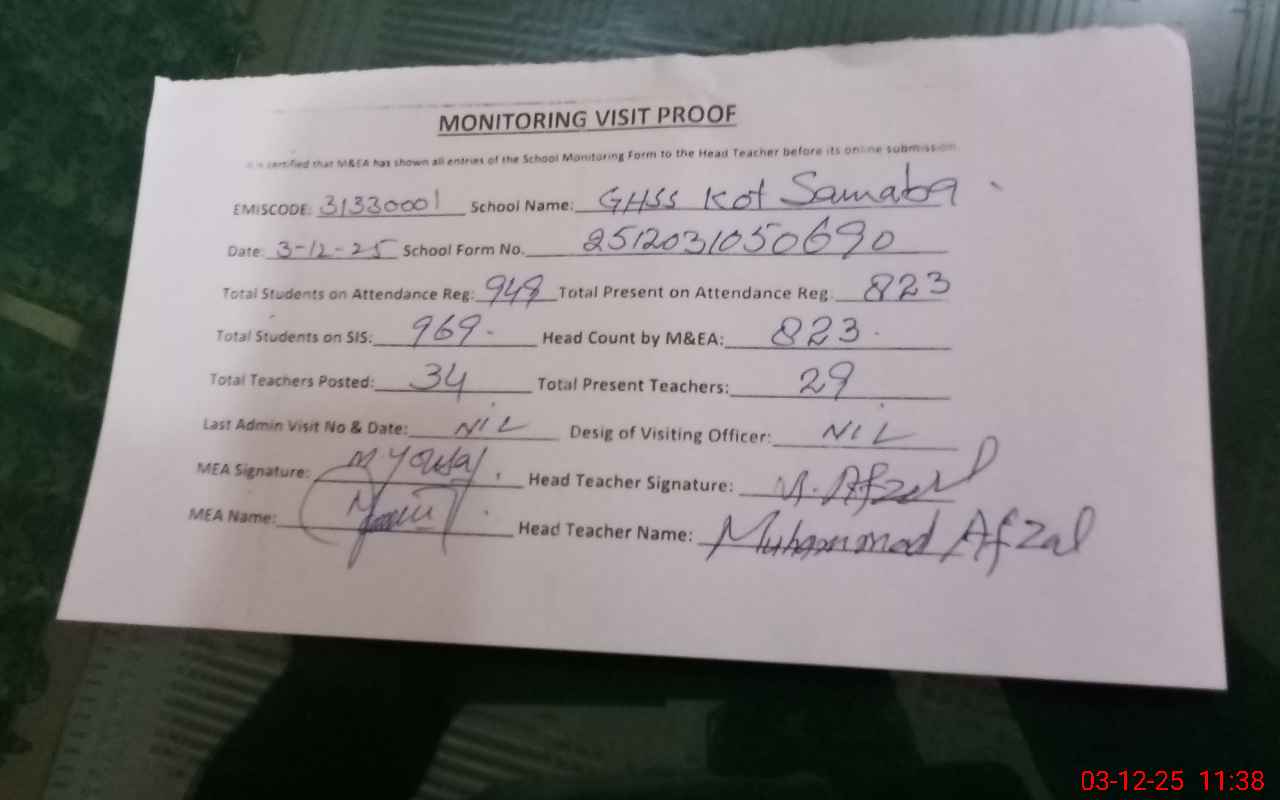 MONITORING VISIT PROOF
It is certified that M&EA has shown all entries of the School Monitoring Form to the Head Teacher before its online submission
EMISCODE: 31330001 School Name: GHSS Kot Samaba
Date: 3-12-25 School Form No. 2512031050690
Total Students on Attendance Reg: 948 Total Present on Attendance Reg. 823
Total Students on SIS: 969. Head Count by M&EA: 823.
Total Teachers Posted: 34 Total Present Teachers: 29
Last Admin Visit No & Date: NIL Desig of Visiting Officer: NIL
MEA Signature: M Yousaf Head Teacher Signature: M. Afzal
MEA Name: Head Teacher Name: Muhammad Afzal
03-12-25 11:38